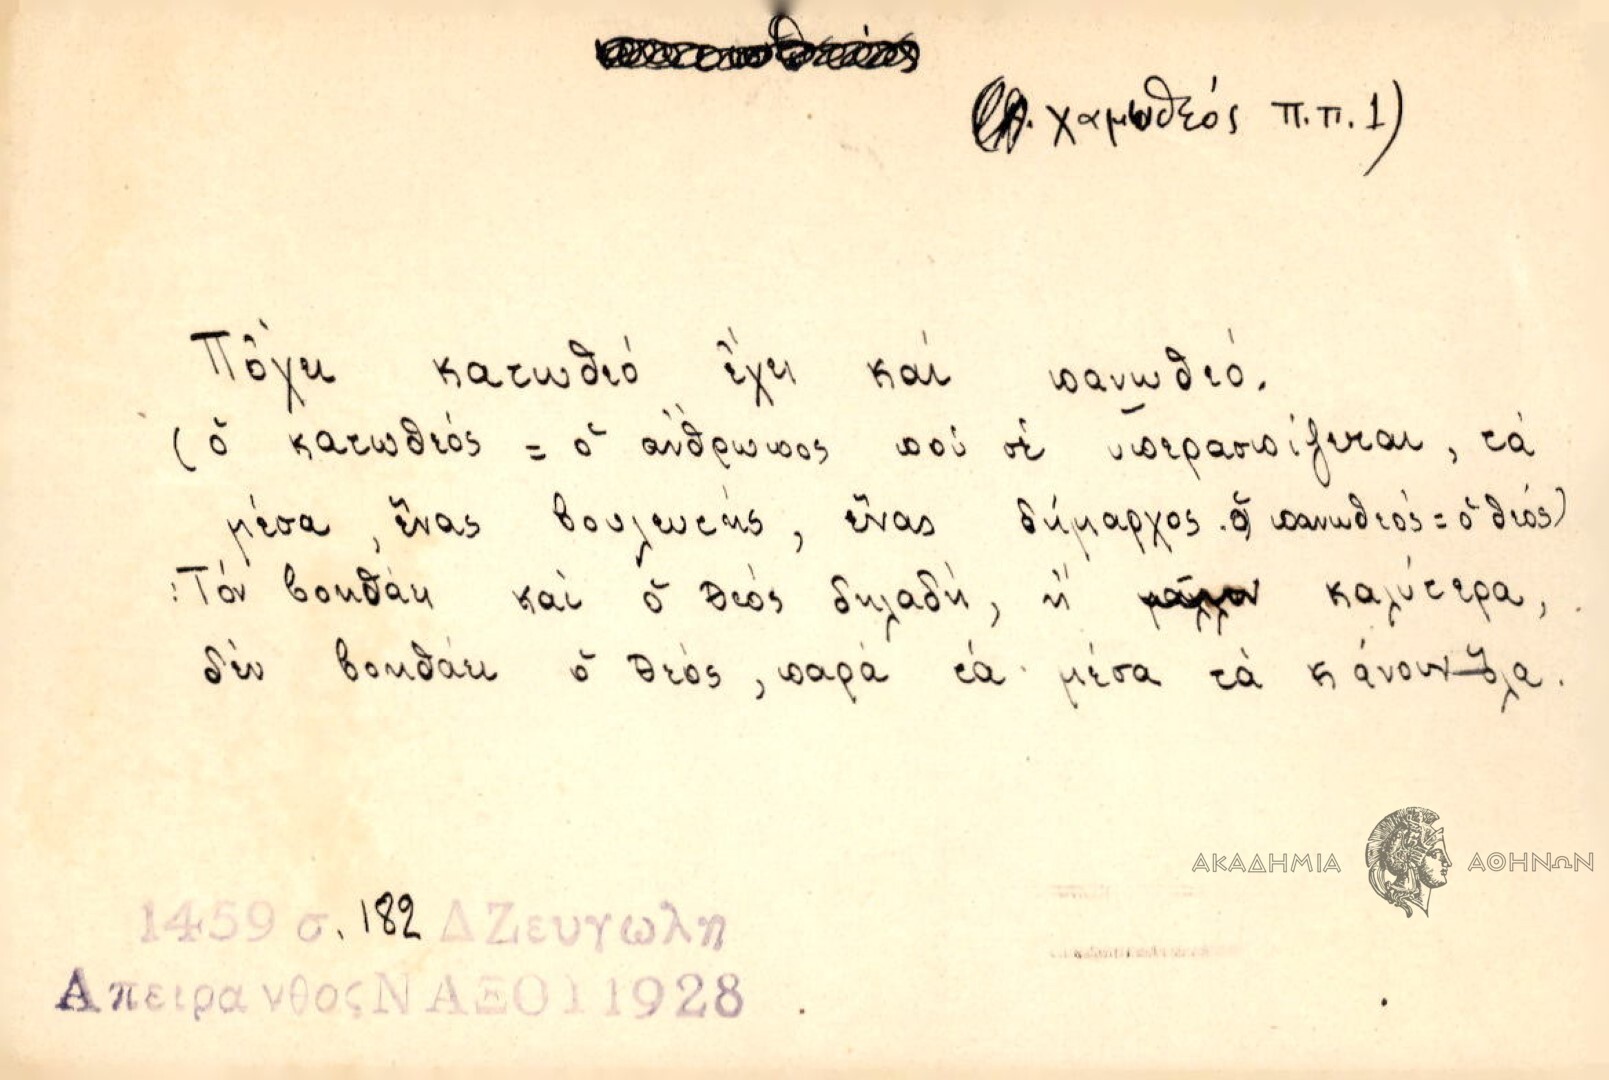 χαμωθεός π.π. 1)
Πὄχει κατωθεό ἔχει καί πανωθεό.
(ὁ κατωθεός = ὁ ἄνθρωπος πού σέ ὑπερασπίζεται, τά
μέσα, ἕνας βουλευτής, ἕνας δήμαρχος. ὁ πανωθεός = ὁ θεός)
:Τόν βοηθάει καί ὁ θεός δηλαδή, ἤ μᾶλλον καλύτερα,
δέν βοηθάει ὁ θεός, παρά τά μέσα τά κάνουν ὅλα.
ΑΚΑΔΗΜΙΑ ΑΘΗΝΩΝ
1459 σ. 182 Δ Ζευγωλη
Απειρανθος ΝΑΞΟΥ 1928